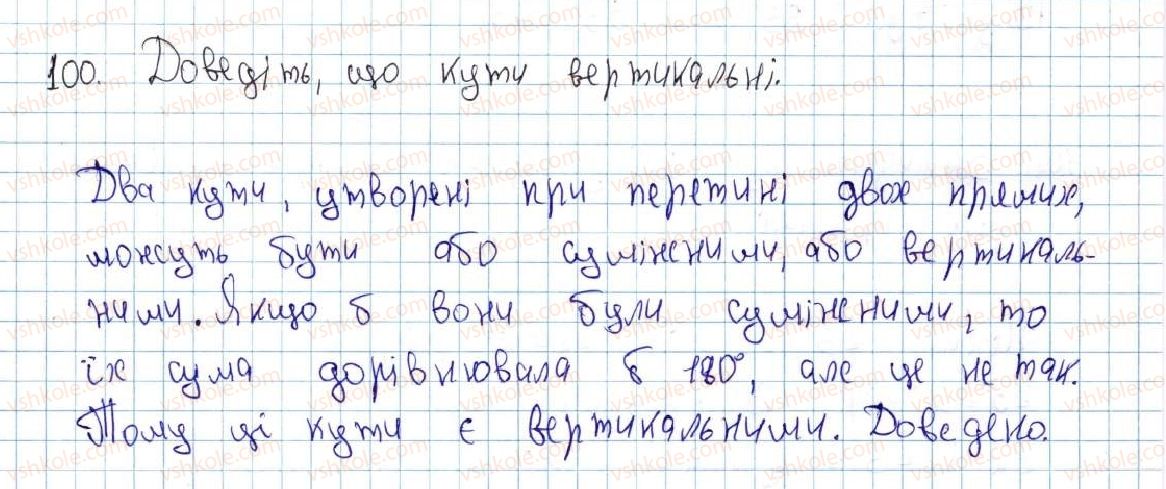 100. Доведіть, що кути вертикальні.
Два кути, утворені при перетині двох прямих,
можуть бути або суміжними, або вертикаль-
ними. Якщо б вони були суміжними, то
їх сума дорівнювала б 180°, але це не так.
Тому ці кути є вертикальними. Доведено.